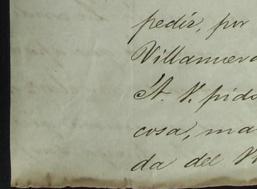 pedir, por
Villanueva
A. V. pido
cosa, ma
da del